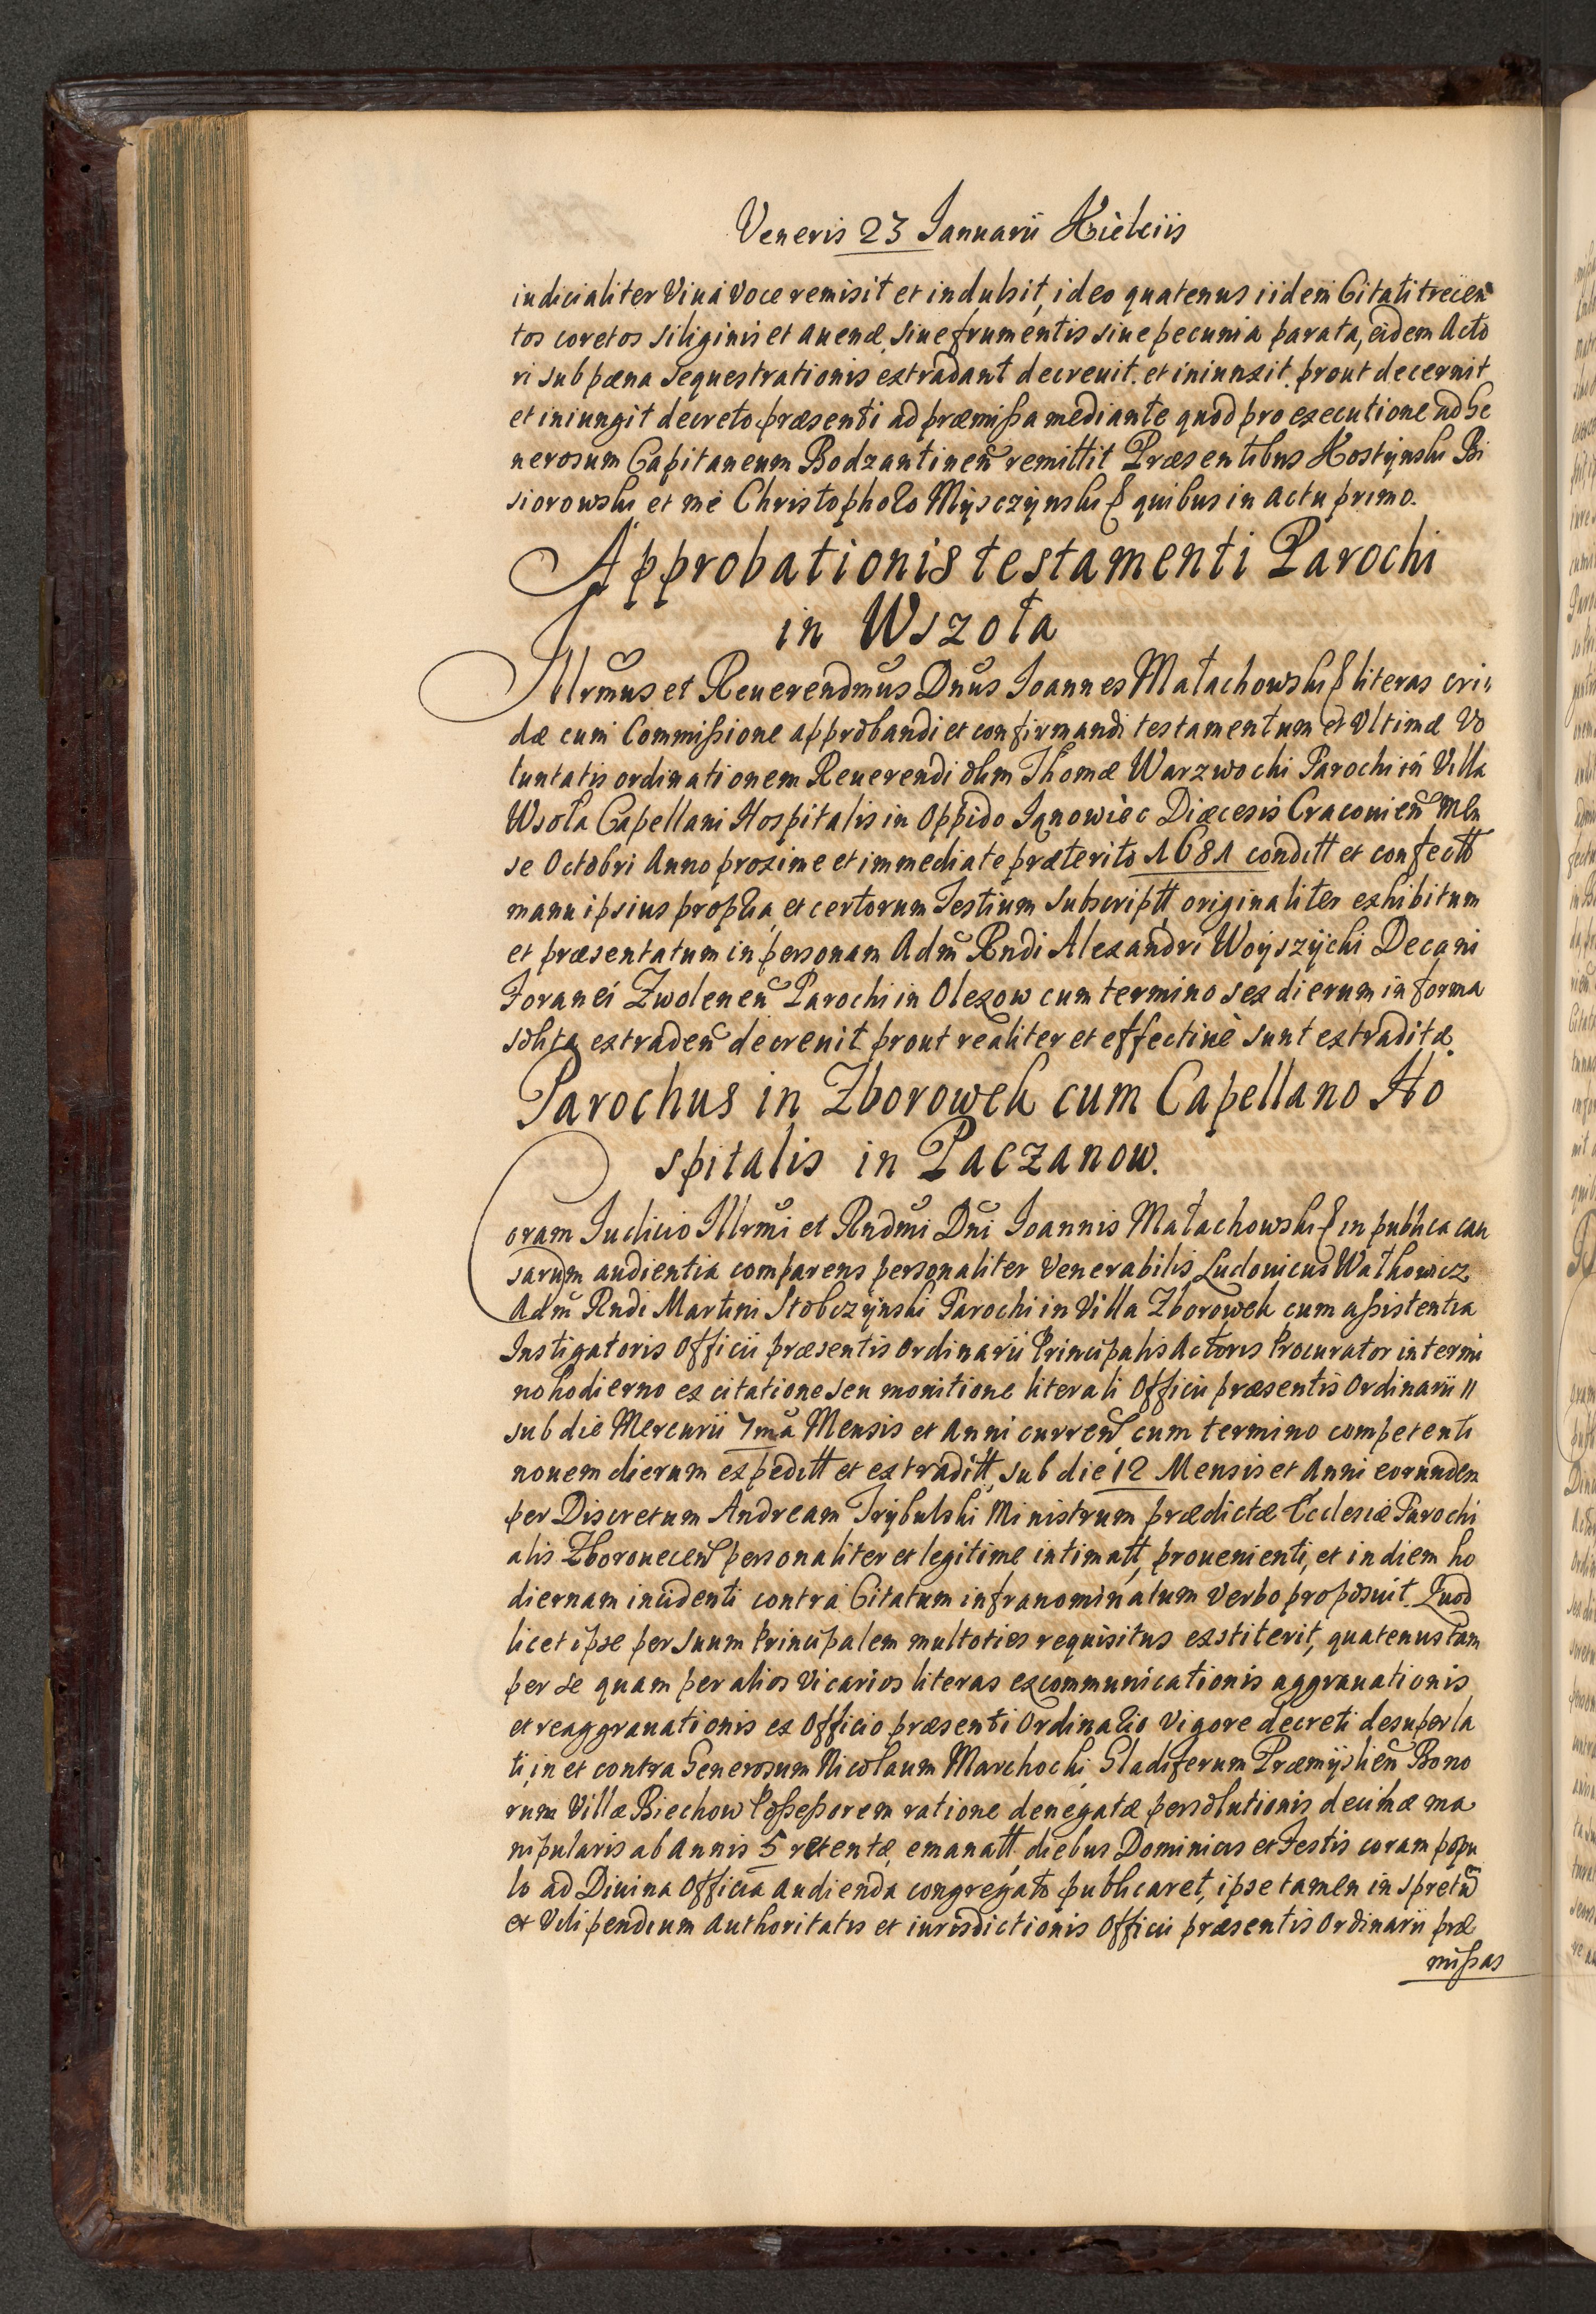 Veneris 23 Ianuarii Kielciis
iudicialiter Viua Voce remisit et indulsit, ideo quatenus iidem Citati trecen
tos coretos siliginis et auenæ, siue frumentis siue pecunia parata, eidem Acto
ri sub pæna sequestrationis extradant decreuit et iniunxit prout decernit
et iniungit decreto præsenti ad præmissa mediante quod pro executione ad Ge
nerosum Capitaneum Bodzantinen remittit Præsentibus Kostynski Bi
siorowski et me Christophoro Mysczynski & quibus in actu primo.
Approbationis testamenti Parochi
in Wszoła
Illrmus et Reuerendmus Dnus Ioannes Małachowski & literas cri„
dæ cum Commissione approbandi et confirmandi testamentum et Vltimæ Vo
luntatis ordinationem Reuerendi olim Thomæ Warzwochi Parochi in Villa
Wsoła Capellani Hospitalis in Oppido Ianowiec Diæcesis Cracouien Men
se Octobri Anno proxime et immediate præterito 1681 conditt et confectt
manu ipsius propria, et certorum Testium subscriptt originaliter exhibitum
et præsentatum in personam Adm Rndi Alexandri Woyszychi Decani
Foranei Zwolenen Parochi in Olexow cum termino sex dierum in forma
solita extraden decreuit prout realiter et effectiuè sunt extraditæ.
Parochus in Zborowek cum Capellano Ho
spitalis in Paczanow.
Coram Iudicio Illrmi et Rndmi Dni Ioannis Małachowski & in publica cau
sarum audientia comparens personaliter Venerabilis Ludouicus Wathowicz
Adm Rndi Martini Stobczynski Parochi in Villa Zborowek cum assistentia
Instigatoris Officii præsentis Ordinarii Principalis Actoris Procurator in termi
no hodierno ex citatione seu monitione literali Officii præsentis Ordinarii //
sub die Mercurii 7ma Mensis et Anni curren cum termino competenti
nouem dierum expeditt et extraditt, sub die 12 Mensis et Anni eorundem
per Discretum Andream Trybulski Ministrum prædictæ Ecclesiæ Parochi
alis Zborouecen personaliter et legitime intimatt, prouenienti, et in diem ho
diernam incidenti contra Citatum infranominatum Verbo proposuit. Quod
licet ipse per suum Principalem multoties requisitus exstiterit, quatenus tam
per se quam per alios Vicarios literas excommunicationis aggrauationis
et reaggrauationis ex Officio præsenti Ordinario Vigore decreti desuper la
ti, in et contra Generosum Nicolaum Marchochi Gladiferum Præmyslien Bono
rum Villæ Biechow Possessorem ratione denegatæ persolutionis decimæ ma
nipularis ab Annis 5 retentæ, emanatt, diebus Dominicis et Festis coram popu
lo ad Diuina Officia audienda congregato publicaret, ipse tamen in spretu
et Vilipendium Authoritatis et iurisdictionis Officii præsentis Ordinarii præ
missas